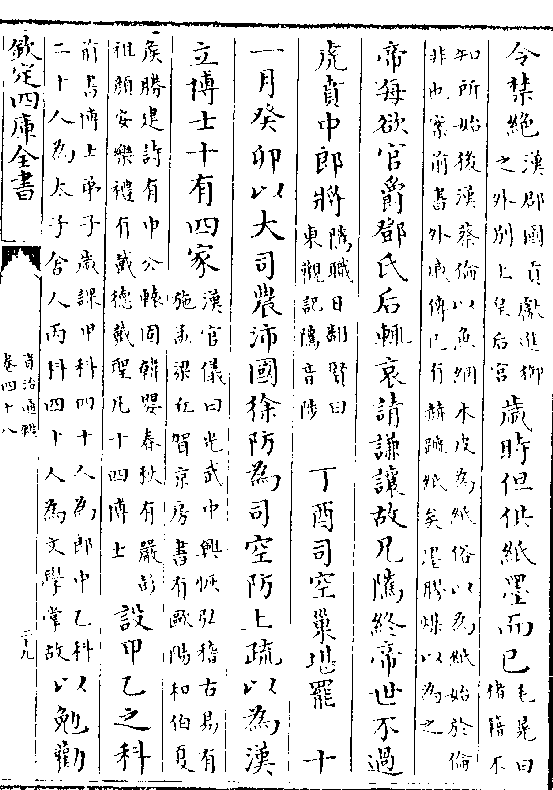 令禁絶漢郡國貢獻進御之外别上皇后宫歲時但供紙墨而已毛晃曰楮籍不
知所始後漢蔡倫以魚網木皮為紙俗以為紙始於倫非也案前書外戚傳已有赫蹏紙矣墨膠煤以為之
帝每欲官爵鄧氏后輒哀請謙讓故兄騭終帝世不過
虎賁中郎將騭職日翻賢曰東觀記騭音陟 丁酉司空巢堪罷 十
一月癸卯以大司農沛國徐防為司空防上疏以為漢
立博士十有四家漢官儀曰光武中興恢弘稽古易有施孟梁丘賀京房書有歐陽和伯夏
侯勝建詩有申公轅固韓嬰春秋有嚴彭祖顔安樂禮有戴德戴聖凡十四博士設甲乙之科
前書博士弟子歲課甲科四十人為郎中乙科二十人為太子舍人丙科四十人為文學掌故以勉勸
欽定四庫全書
資治通鑑
卷四十八
二十九